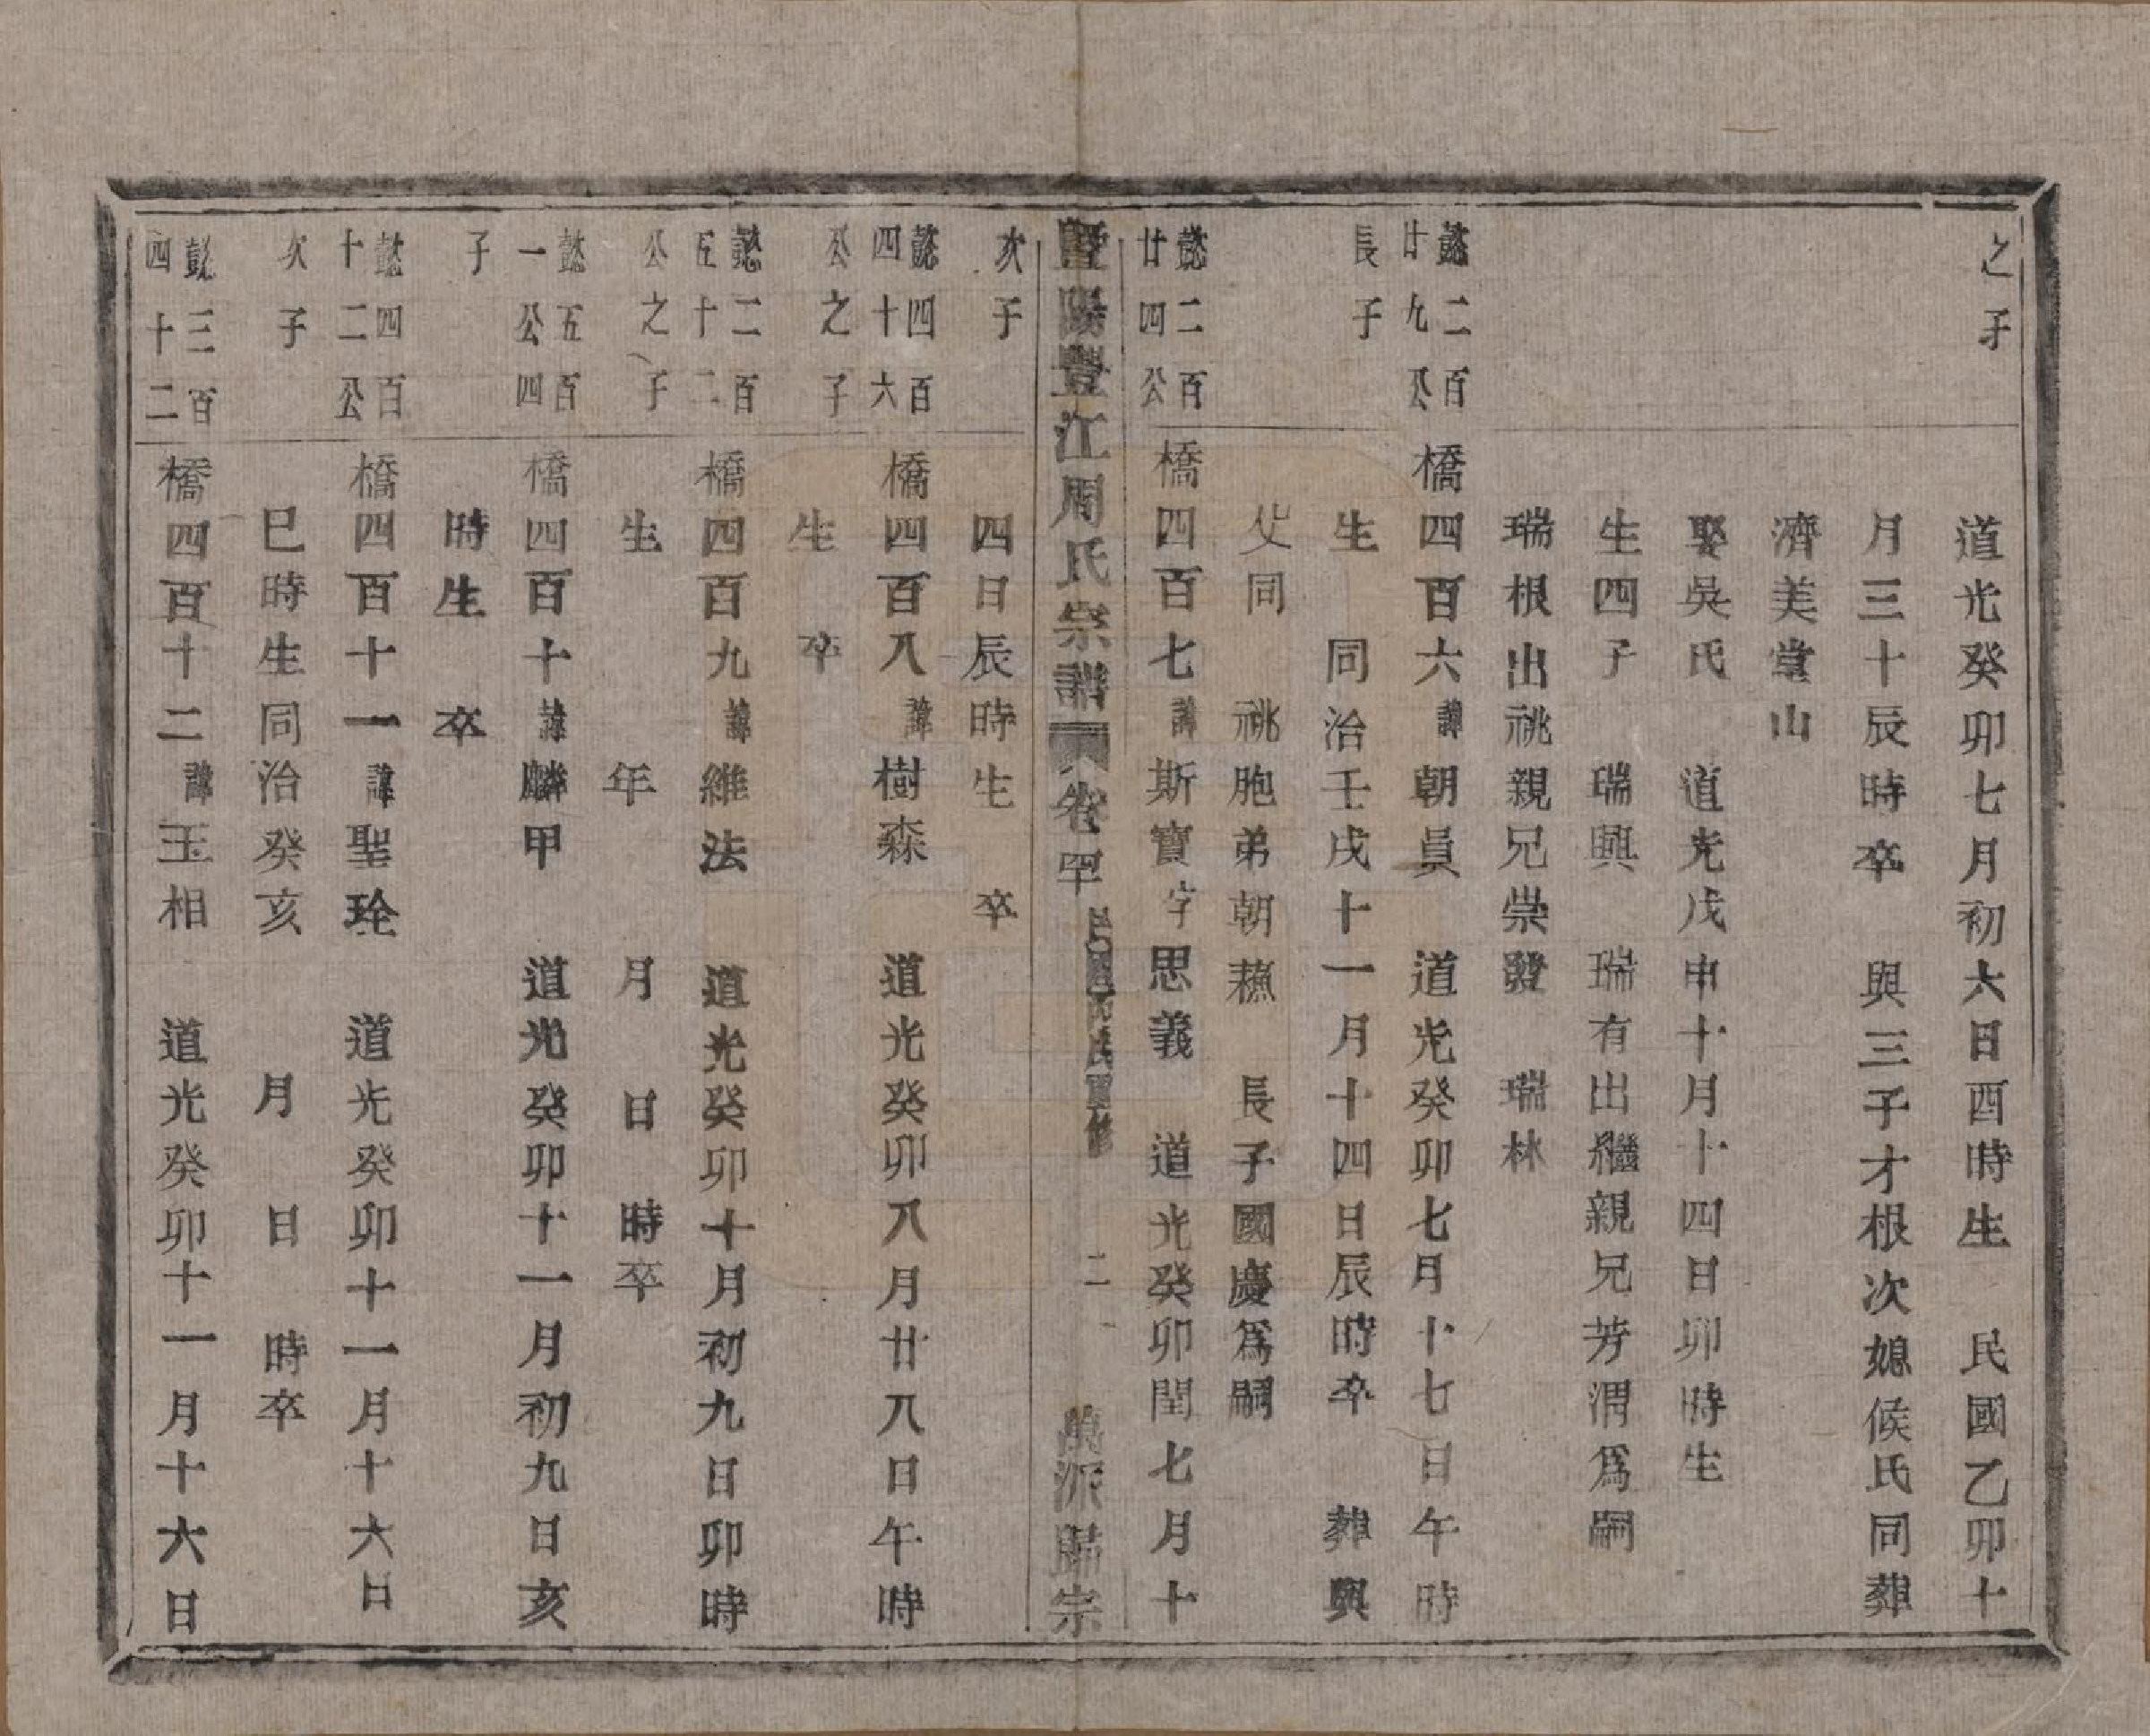 之子
道光癸卯七月初六日酉時生　民國乙卯十
月三十辰時卒　與三子才根次媳候氏同葬
濟美堂山
娶吳氏　道光戊申十月十四日卯時生
生四子　瑞興　瑞有出繼親兄芳渭爲嗣
瑞根出祧親兄崇發　瑞林
懿二百
廿九公
長子
橋四百六諱朝員　道光癸卯七月十七日午時
生　同治壬戌十一月十四日辰時卒　葬與
父同　祧胞弟朝藮　長子國慶爲嗣
懿二百
廿四公
橋四百七諱斯寶字思義　道光癸卯閏七月十
暨陽豐江周氏宗譜　卷罕　民國重修　二　萬派歸宗
次子
四日辰時生　卒
懿四百
四十六
公之子
橋四百八諱樹森　道光癸卯八月廿八日午時
生　卒
懿二百
五十二
公之子
橋四百九諱維法　道光癸卯十月初九日卯時
生　年　月　日　時卒
懿五百
一公四
子
橋四百十諱麟甲　道光癸卯十一月初九日亥
時生　卒
懿四百
十二公
次子
橋四百十一諱聖玲　道光癸卯十一月十六日
巳時生同治癸亥　月　日　時卒
懿三百
四十二
橋四百十二諱玉相　道光癸卯十一月十六日